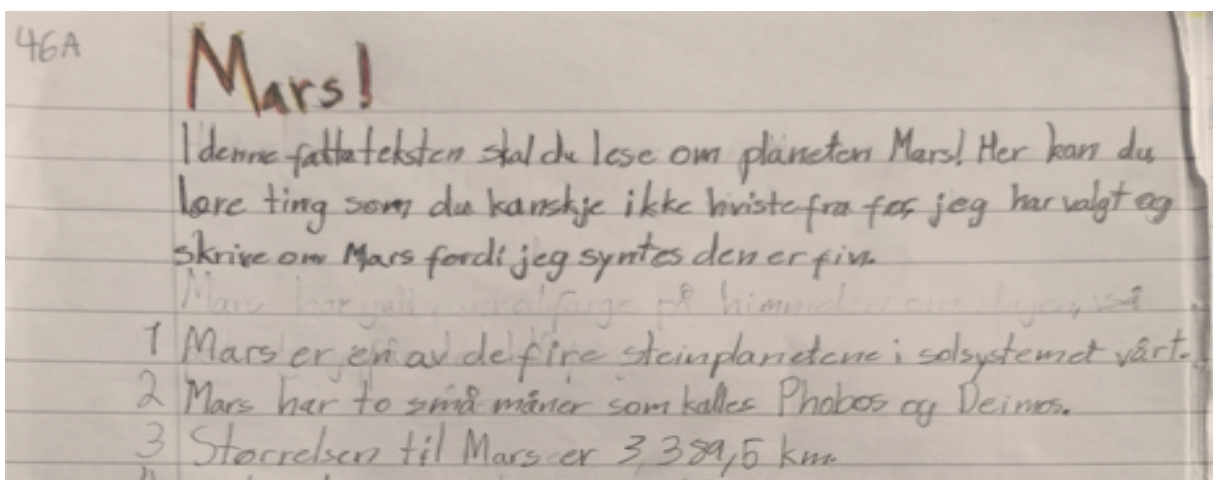 46A
Mars!
I denne faktateksten skal du lese om planeten Mars! Her kan du
lære ting som du kanskje ikke hviste fra før jeg har valgt og
skrive om Mars fordi jeg syntes den er fin.
Mars har på himmelen
1 Mars er en av de fire steinplanetene i solsystemet vårt.
2 Mars har to små måner som kalles Phobos og Deimos.
3 Størrelsen til Mars er 3,389,5 km.